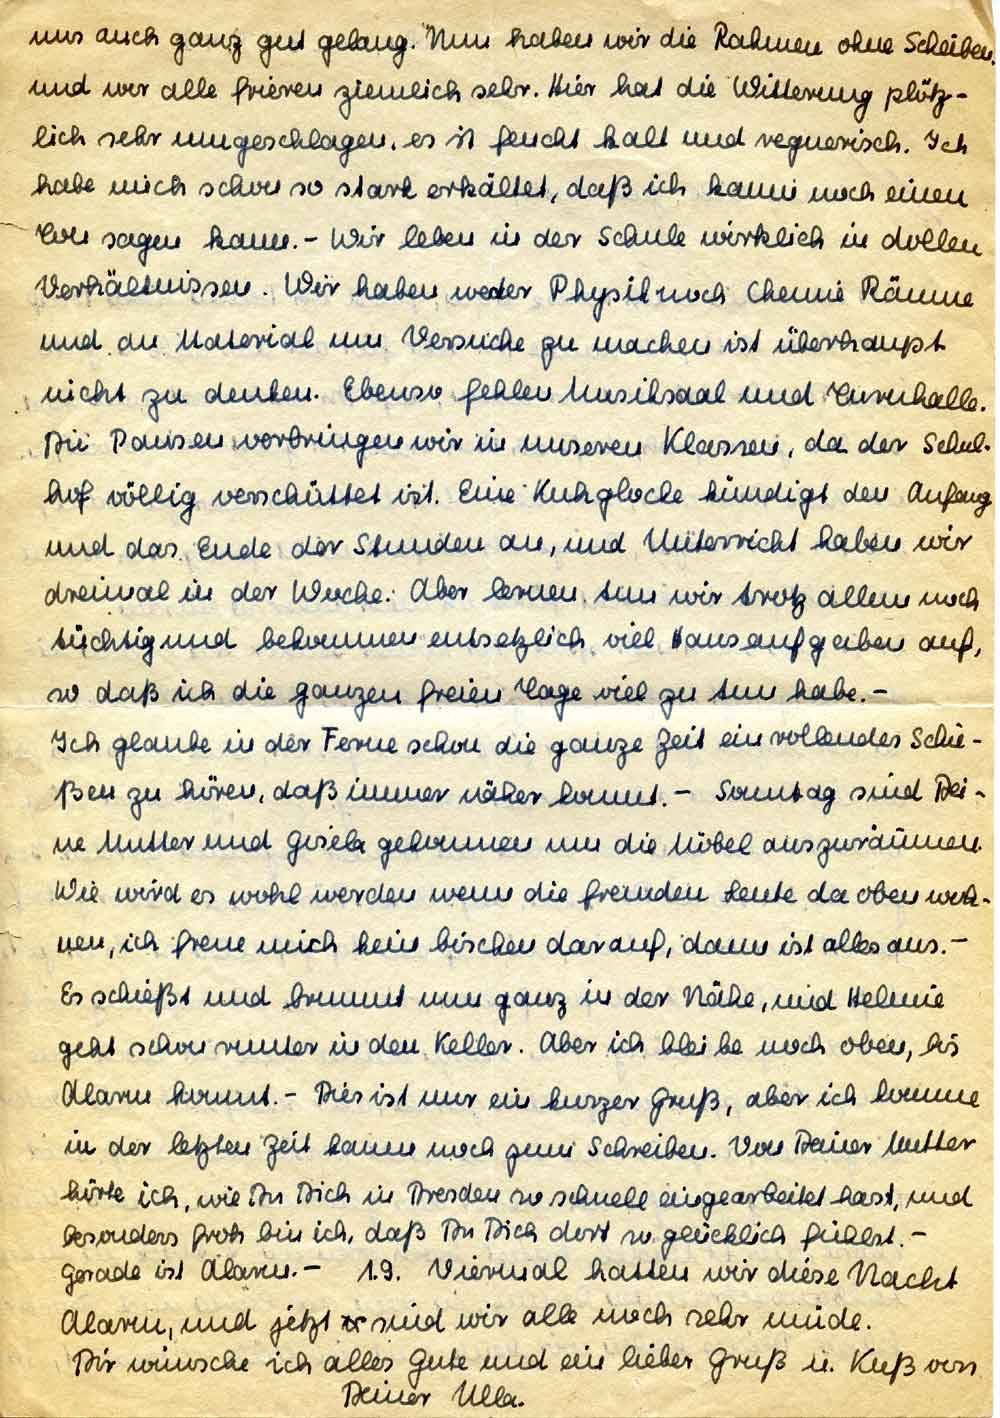 uns auch ganz gut gelang. Nun haben wir die Rahmen ohne Scheiben
und wir alle frieren ziemlich sehr. Hier hat die Witterung plötz-
lich sehr umgeschlagen, es ist feucht kalt und regnerisch. Ich
habe mich schon so stark erkältet, daß ich kaum noch einen
Ton sagen kann. – Wir leben in der Schule wirklich in dollen
Verhältnissen. Wir haben weder Physik noch Chemie Räume
und an Material um Versuche zu machen ist überhaupt
nicht zu denken. Ebenso fehlen Musiksaal und Turnhalle.
Die Pausen verbringen wir in unseren Klassen, da der Schul-
hof völlig verschüttet ist. Eine Kuhglocke kündigt den Anfang
und das Ende der Stunden an, und Unterricht haben wir
dreimal in der Woche. Aber lernen tun wir trotz allem noch
tüchtig und bekommen entsetzlich viel Hausaufgaben auf,
so daß ich die ganzen freien Tage viel zu tun habe. –
Ich glaube in der Ferne schon die ganze Zeit ein rollendes Schie-
ßen zu hören, daß immer näher kommt. – Sonntag sind Dei-
ne Mutter und Gisela gekommen um die Möbel auszuräumen.
Wie wird es wohl werden wenn die fremden Leute da oben woh-
nen, ich freue mich kein bischen darauf, dann ist alles aus. –
Es schießt und brummt nun ganz in der Nähe, und Helmie
geht schon runter in den Keller. Aber ich bleibe noch oben, bis
Alarm kommt. – Dies ist nur ein kurzer Gruß, aber ich komme
in der letzten Zeit kaum noch zum Schreiben. Von Deiner Mutter
hörte ich, wie Du Dich in Dresden so schnell eingearbeitet hast, und
besonders froh bin ich, daß Du Dich dort so glücklich fühlst. –
Gerade ist Alarm. – 1.9. Viermal hatten wir diese Nacht
Alarm, und jetzt sind wir alle noch sehr müde.
Dir wünsche ich alles Gute und ein lieber Gruß u. Kuß von
Deiner Ulla.